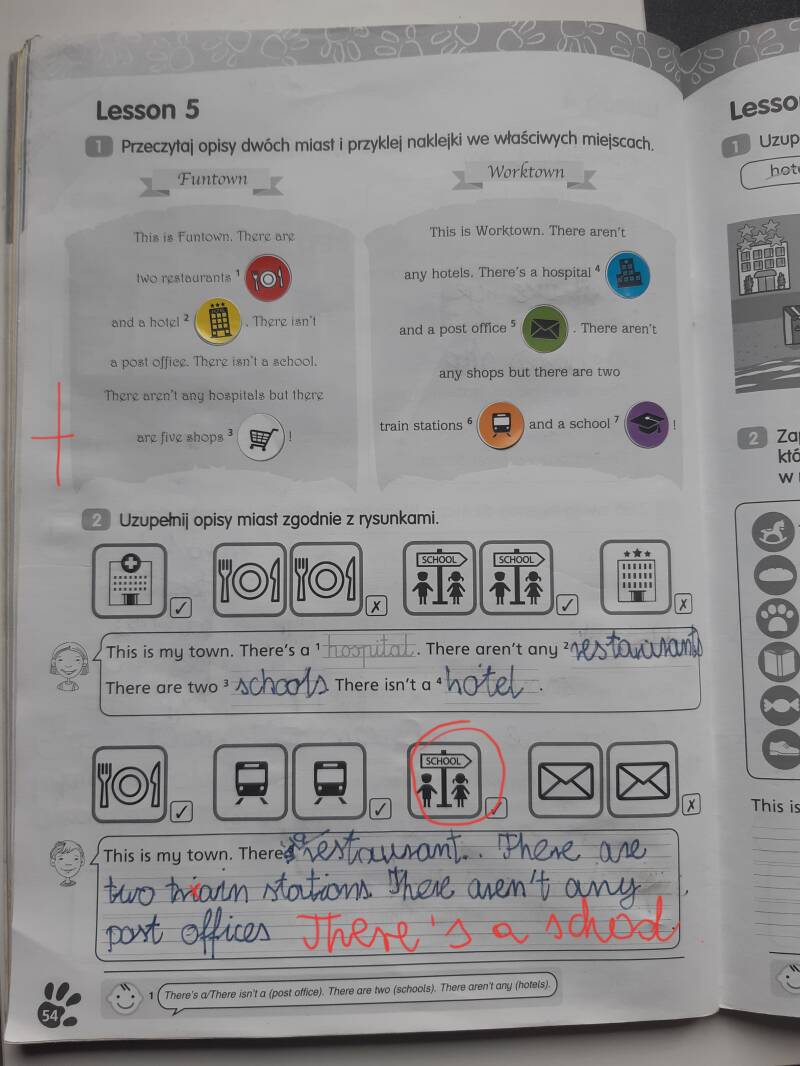 Lesson 5
1 Przeczytaj opisy dwóch miast i przyklej naklejki we właściwych miejscach.
Funtown
This is Funtown. There are
two restaurants 1
and a hotel 2 HOTEL . There isn't
a post office. There isn't a school.
There aren't any hospitals but there
are five shops 3 !
Worktown
This is Worktown. There aren't
any hotels. There's a hospital 4
and a post office 5 . There aren't
any shops but there are two
train stations 6 and a school 7 !
2 Uzupełnij opisy miast zgodnie z rysunkami.
SCHOOL SCHOOL
✓ ✗ ✓ ✗
This is my town. There's a 1 hospital. There aren't any 2 restaurants
There are two 3 schools. There isn't a 4 hotel .
SCHOOL
✓ ✓ ✓ ✗
This is my town. There's a restaurant. There are
two train stations. There aren't any
post offices There's a school
1 There's a/There isn't a (post office). There are two (schools). There aren't any (hotels).
54
Lesso
1 Uzup
hote
2 Za
któ
w
This is